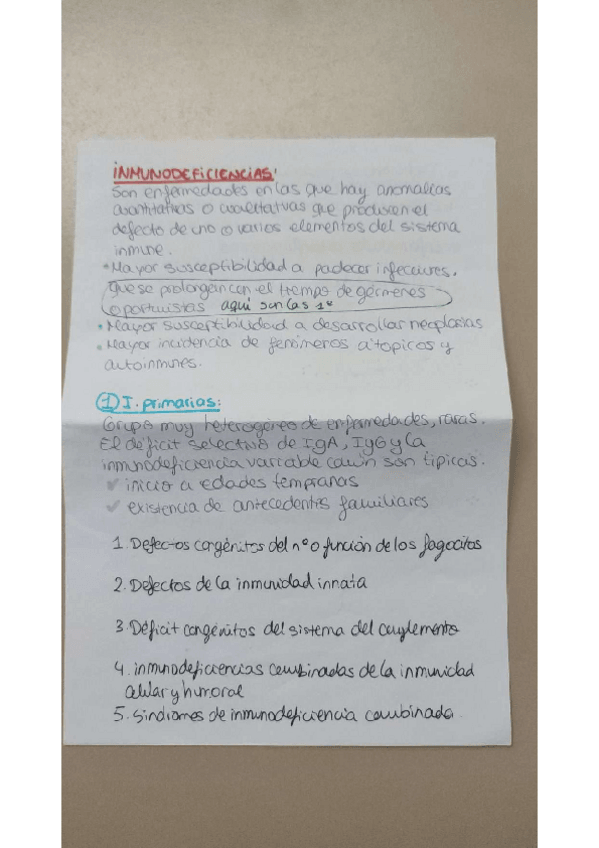 INMUNODEFICIENCIAS:
Son enfermedades en las que hay anomalías
cuantitativas o cualitativas que producen el
defecto de uno o varios elementos del sistema
inmune.
• Mayor susceptibilidad a padecer infecciones.
que se prolongan con el tiempo de gérmenes
oportunistas aquí son las 1º
• Mayor susceptibilidad a desarrollar neoplasias
• Mayor incidencia de fenómenos atópicos y
autoinmunes.
① I. primarias:
Grupo muy heterogéneo de enfermedades, raras.
El déficit selectivo de IgA, IgG y la
inmunodeficiencia variable común son típicas.
✓ inicio a edades tempranas
✓ existencia de antecedentes familiares
1. Defectos congénitos del nº o función de los fagocitos
2. Defectos de la inmunidad innata
3. Déficit congénitos del sistema del complemento
4. inmunodeficiencias combinadas de la inmunidad
celular y humoral
5. Síndromes de inmunodeficiencia combinada.